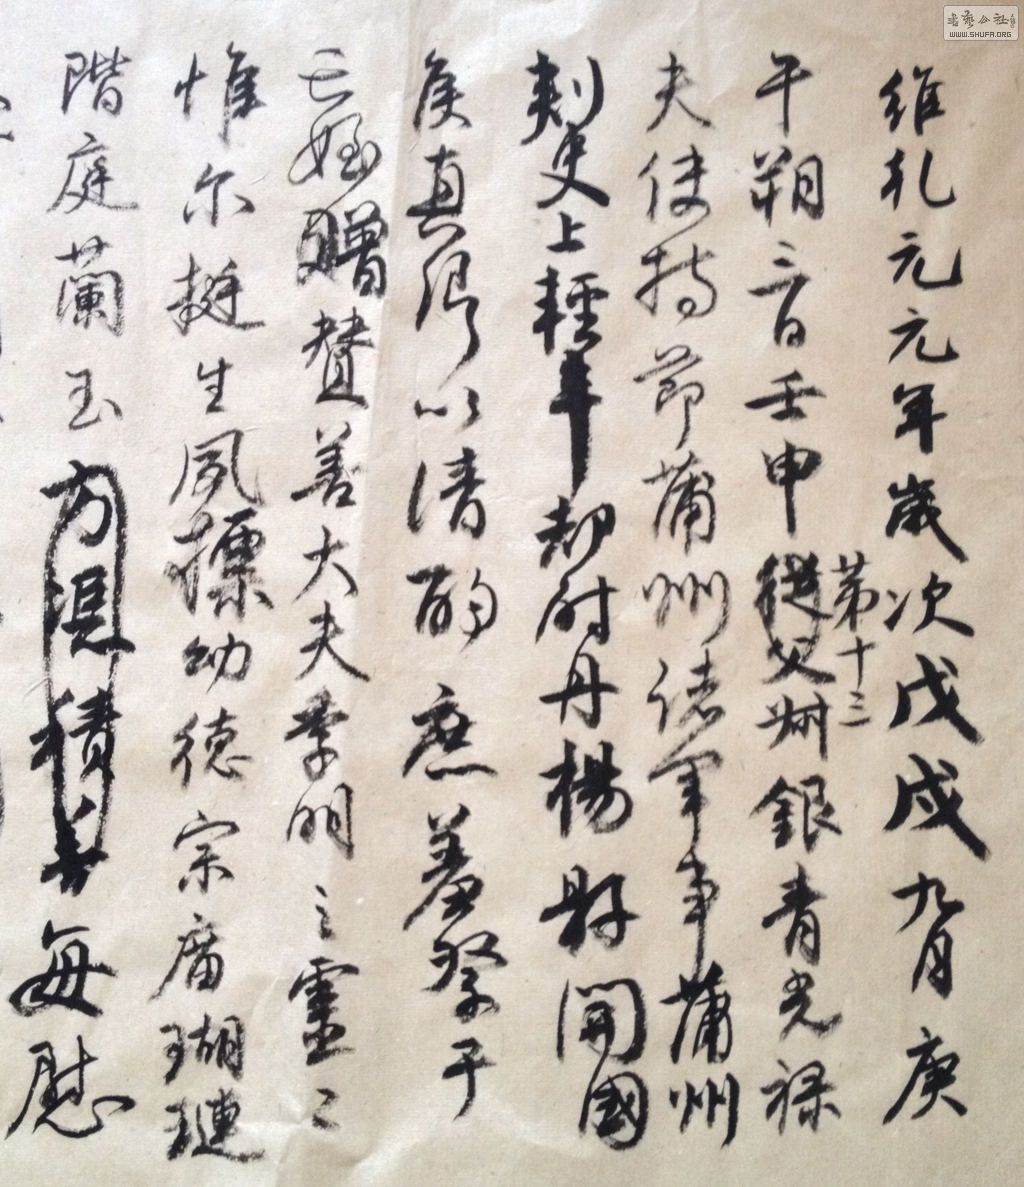 維乾元元年歲次戊戌九月庚
午朔三日壬申第十三從父叔銀青光祿
夫使持節蒲州諸軍事蒲州
刺史上輕車都尉丹楊縣開國
侯真卿以清酌庶羞祭于
亡姪贈贊善大夫季明之靈曰
惟尔挺生夙標幼德宗廟瑚璉
階庭蘭玉方憑積善每慰
書藝公社
WWW.SHUFA.ORG